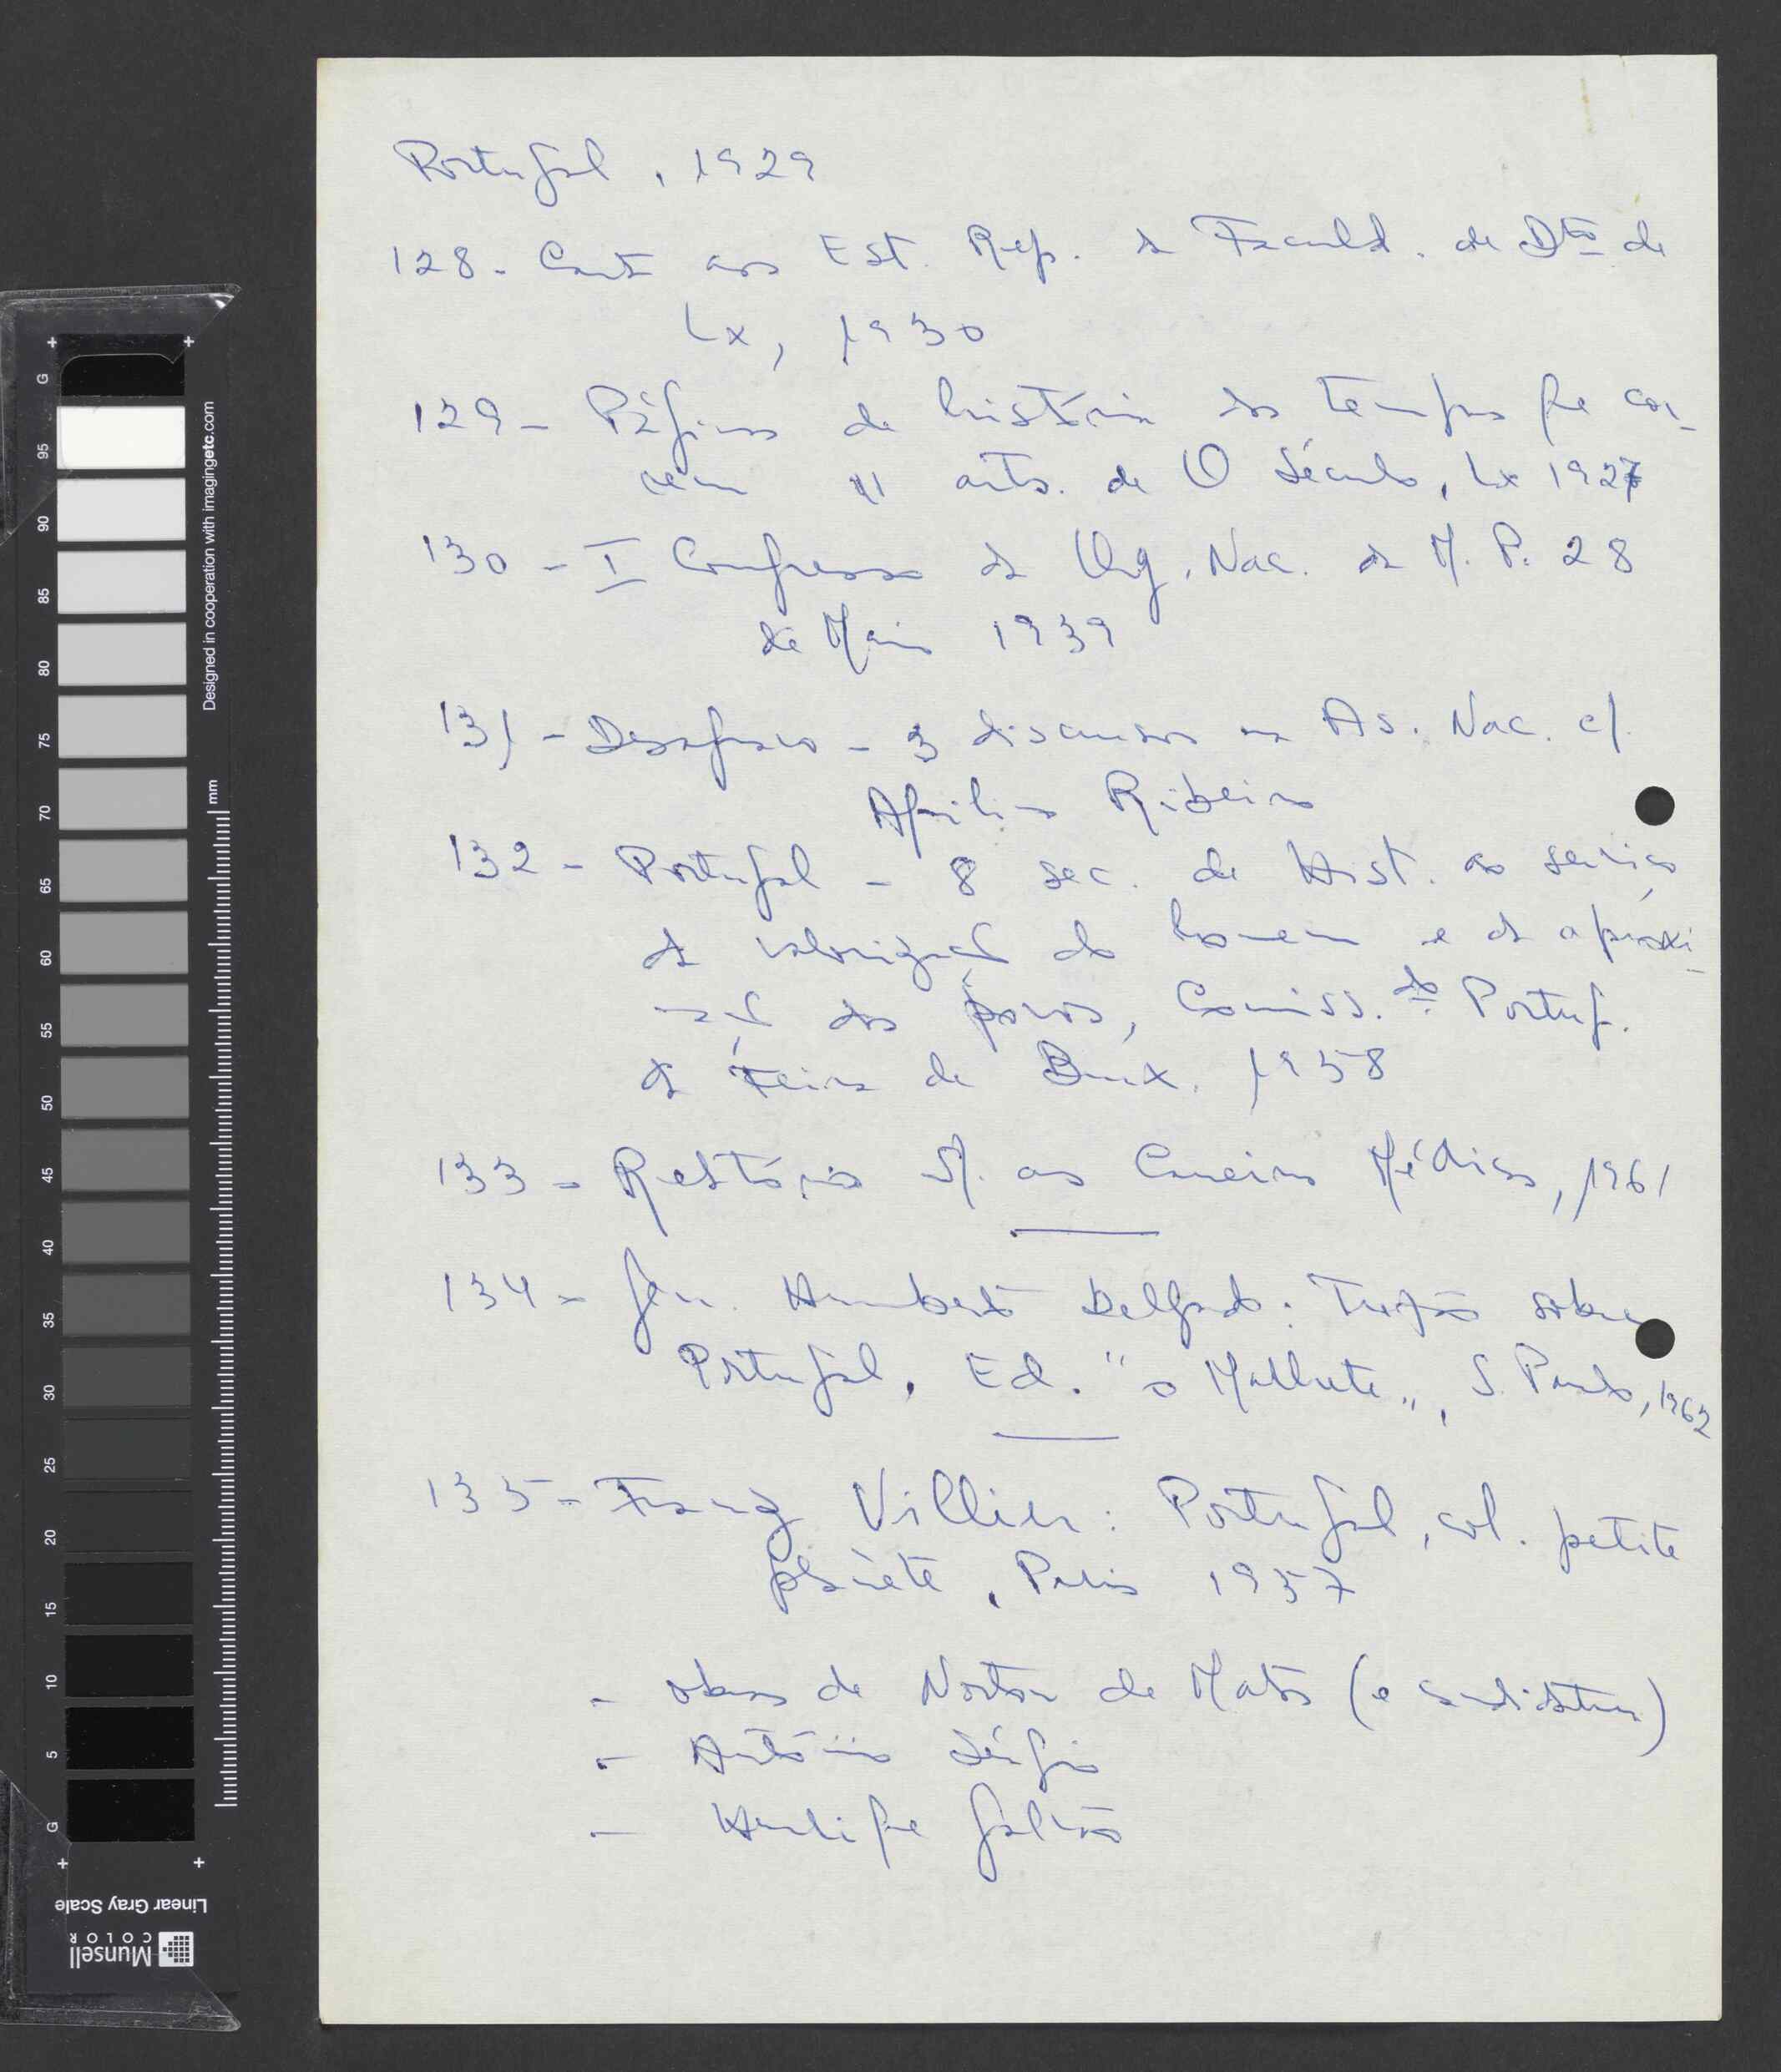 Portugal, 1929
128 - Carta aos Est. Rep. da Faculd. de Dto de
Lx, 1930
129 - Páginas de história dos tempos que cor-
rem 11 arts. de O Século, Lx 1927
130 - I Congresso da Org. Nac. da M. P. 28
de Maio 1939
131 - Desagravo - 3 discursos na As. Nac. c/.
Aquilino Ribeiro
132 - Portugal - 8 sec. de Hist. ao serviço
da valorização do homem e da aproxi-
mação dos povos, Comiss.do Portug.
da Feira de Brux. 1958
133 - Relatório s/. as Carreiras Médicas, 1961
134 - Gen. Humberto Delgado: Tufão sobre
Portugal, Ed. "o Malhete", S. Paulo, 1962
135 - Franz Villier: Portugal, col. petite
planète, Paris 1957
- obras de Norton de Matos (e candidatura)
- António Sérgio
- Henrique Galvão
G 95 90 85 80 75 70 65 60 55 50 45 40 35 30 25 20 15 10 5 G
Designed in cooperation with imagingetc.com
mm
Linear Gray Scale
Munsell
COLOR